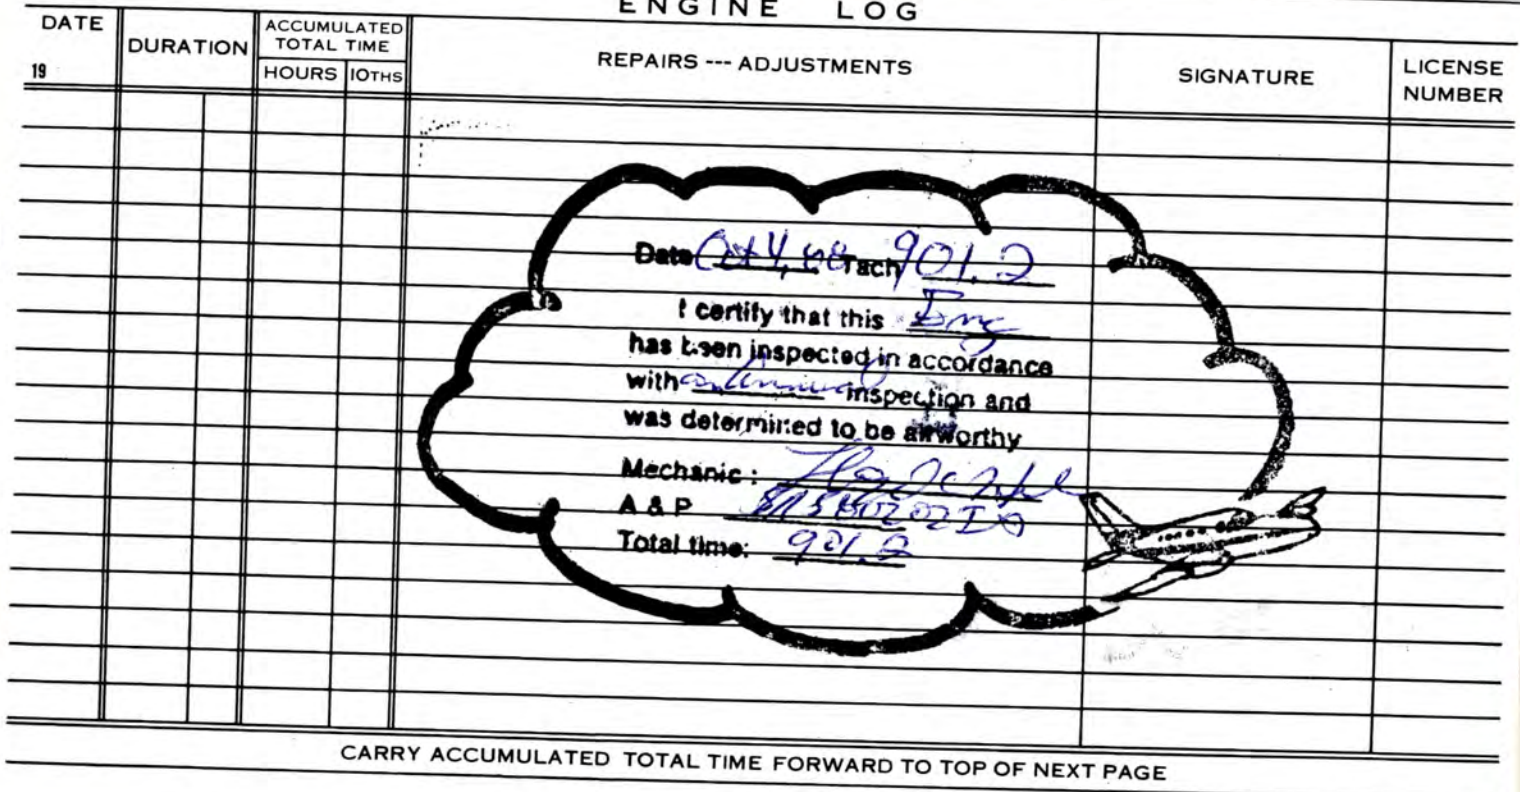 ENGINE LOG
DATE
19
DURATION
ACCUMULATED TOTAL TIME
HOURS 10THS
REPAIRS --- ADJUSTMENTS
SIGNATURE
LICENSE NUMBER
Date Oct 4, Tach 901.2
I certify that this Eng
has been inspected in accordance
with an Annual inspection and
was determined to be airworthy
Mechanic:
A & P
Total time: 901.2
CARRY ACCUMULATED TOTAL TIME FORWARD TO TOP OF NEXT PAGE